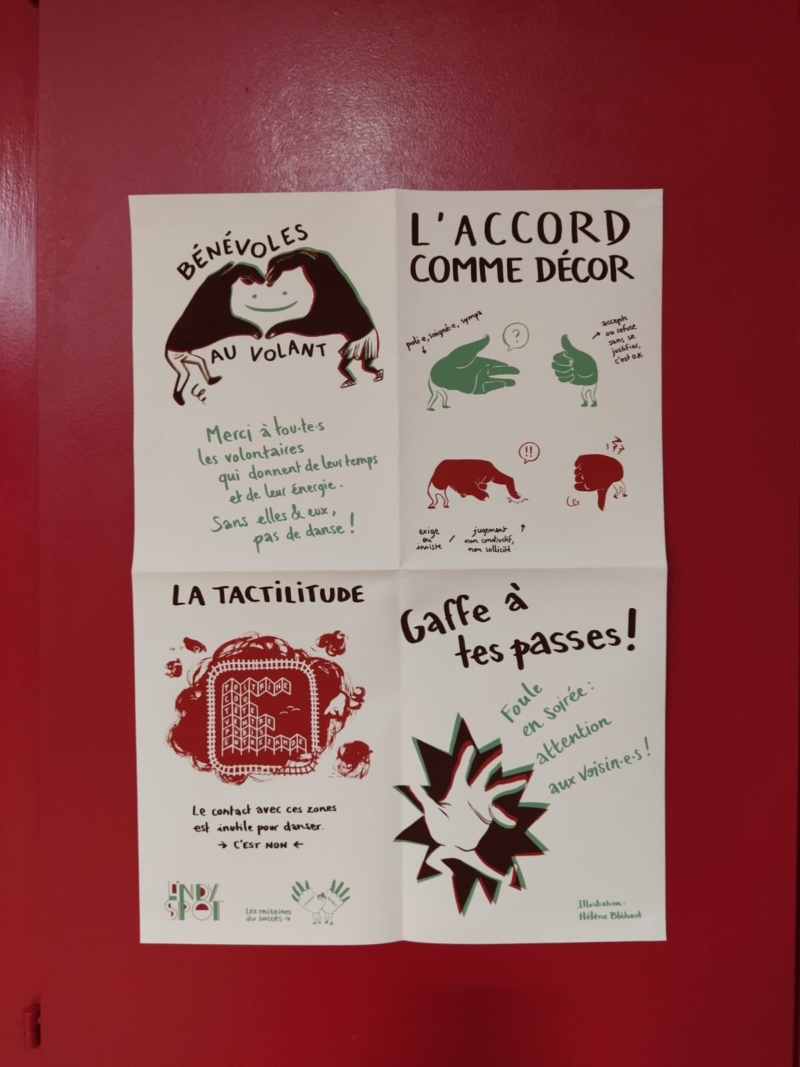 BÉNÉVOLES
AU VOLANT
Merci à tou·te·s
les volontaires
qui donnent de leur temps
et de leur énergie.
Sans elles & eux,
pas de danse !
L'ACCORD
COMME DÉCOR
poli·e, soigné·e, sympa
?
accepte
ou refuse
sans se
justifier,
c'est O.K
!!
exige
ou
insiste
/
jugement
non constructif,
non sollicité
LA TACTILITUDE
POITRINE
Le contact avec ces zones
est inutile pour danser.
→ C'EST NON ←
L'INDY
SPOT
Les mitaines
du succès →
Gaffe à
tes passes !
Foule
en soirée :
attention
aux voisin·e·s !
Illustration :
Hélène Bléhaut